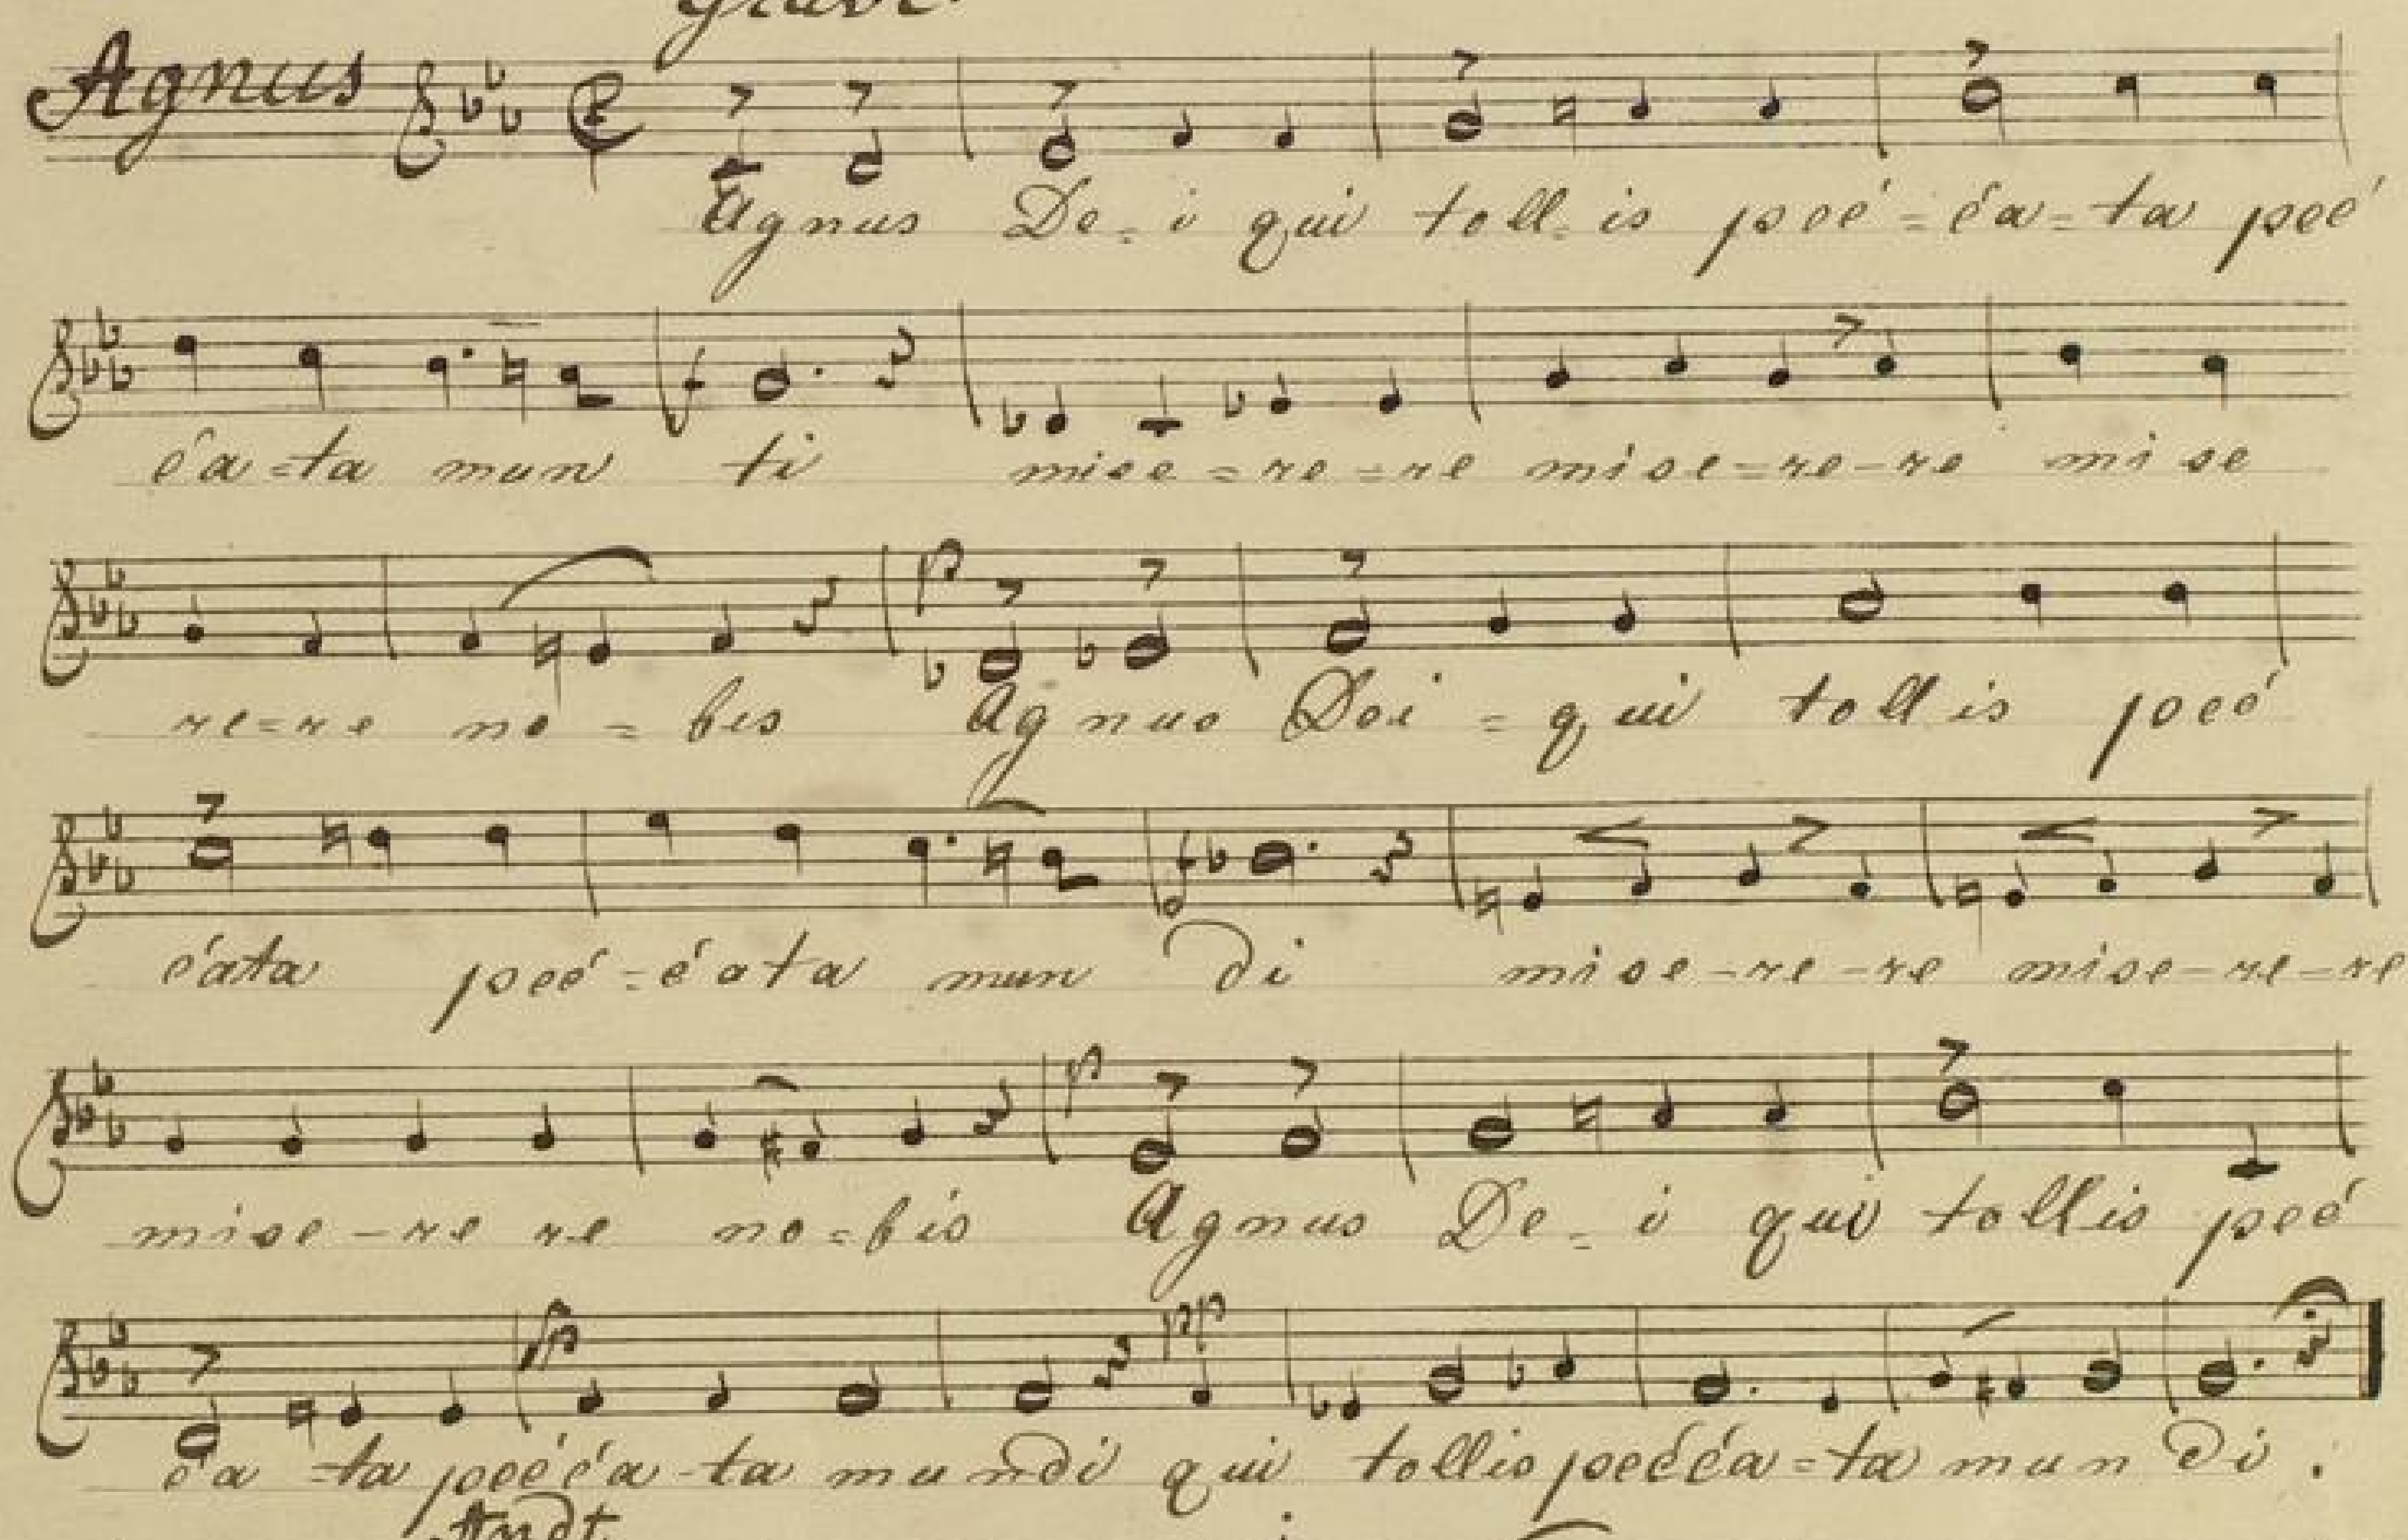 Grave.
Agnus
Agnus De-i qui toll-is peć=ća=ta peć
ća=ta mun ti mise=re=re mise=re-re mise
re=re no=bis Agnus Dei=qui tollis peć
ćata peć=ćata mun di mise-re-re mise-re-re
mise-re re no=bis Agnus De-i qui tollis peć
ća=ta pećća-ta mundi qui tollis pećća=ta mun di.
Andt.